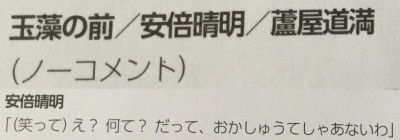 玉藻の前／安倍晴明／蘆屋道満
（ノーコメント）
安倍晴明
「（笑って）え？ 何て？ だって、おかしゅうてしゃあないわ」